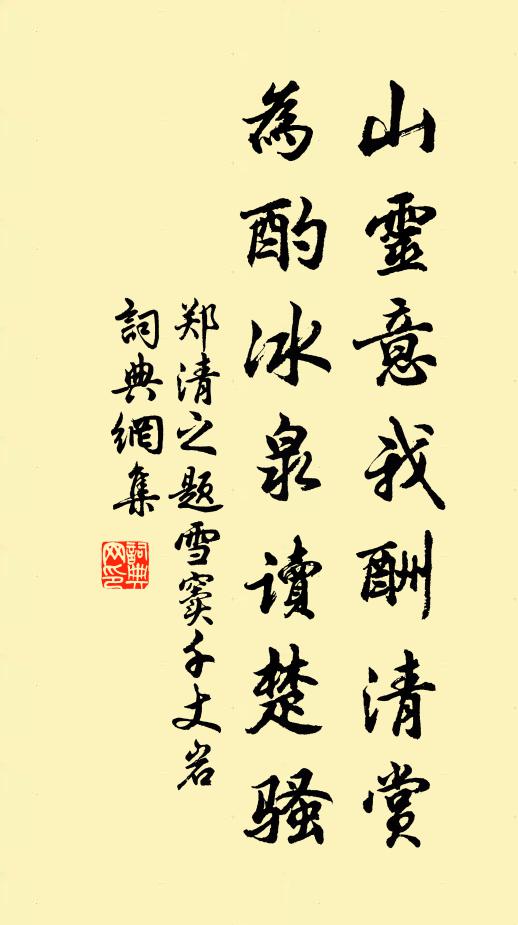 山靈意我酬清赏
為酌冰泉读楚骚
郑清之题雪窦千丈岩
詞典網集
詞典網印